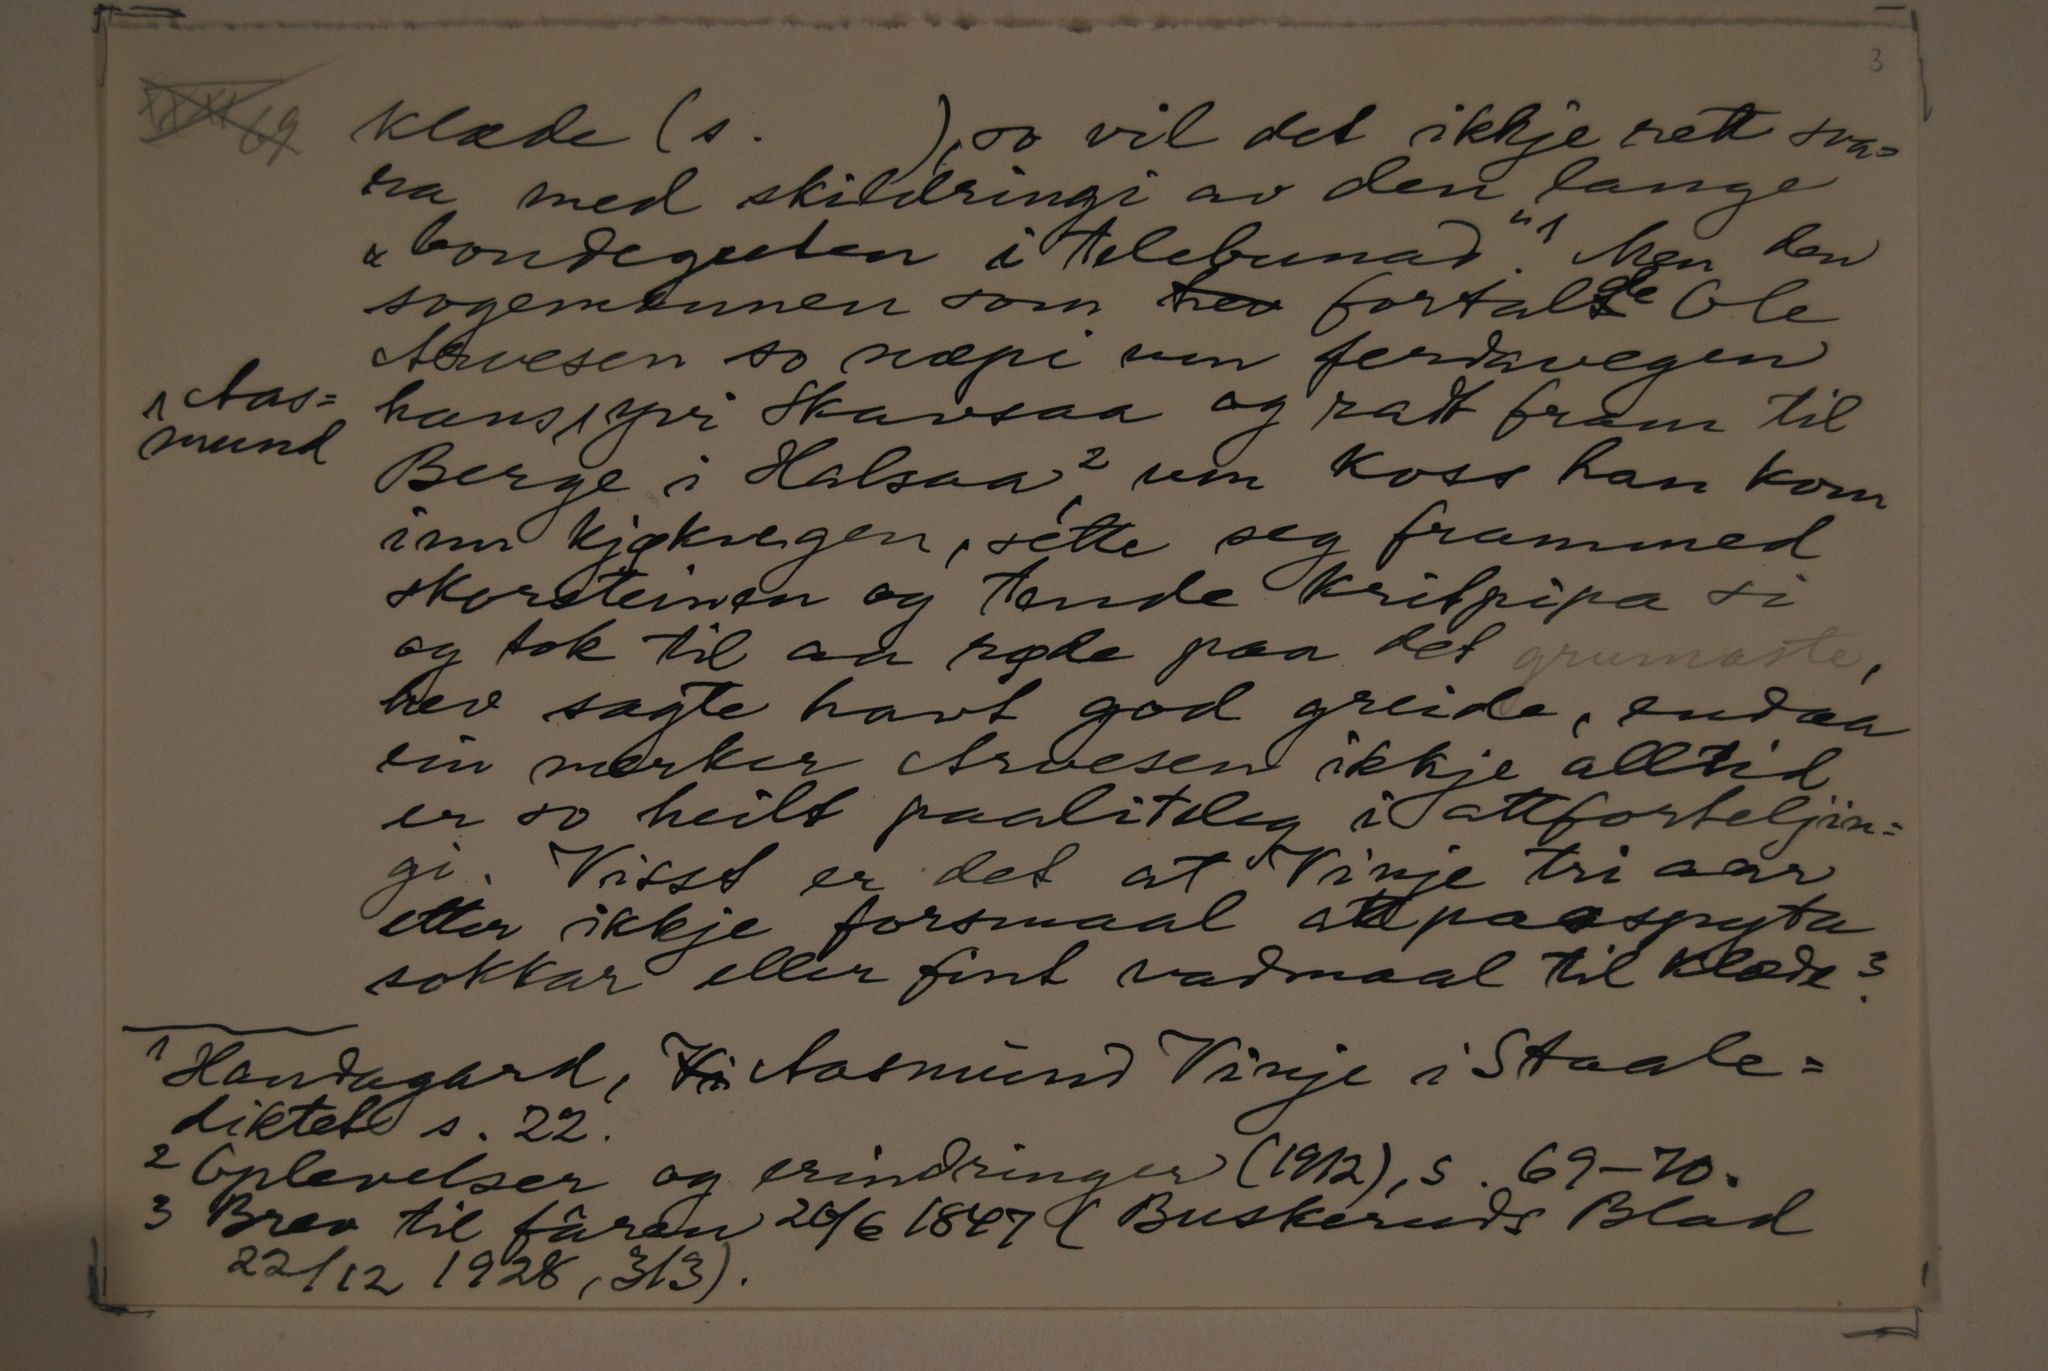 3
69
klæde (s. ), so vil det ikkje rett sva=
ra med skildringi av den lange
"bondeguten i telebunad".1 Men den
sogemannen som hev fortalde Ole
Arvesen so næpi um ferdavegen
hans, yvi Skavsaa og ratt fram til
1 Aas=
mund
Berge i Halsaa,2 um koss han kom
inn kjøkvegen, sette seg frammed
skorsteinen og tende kritpipa si
og tok til aa røde paa det grumaste,
hev sagte havt god greide, endaa
ein merker Arvesen ikkje alltid
er so heilt paaliteleg i attforteljin=
gi. Visst er det at Vinje tri aar
etter ikkje forsmaal atte paaspyta
sokkar eller fint vadmaal til klæde.3
1 Handagard, Vi Aasmund Vinje i Staale=
diktet s. 22.
2 Oplevelser og erindringer (1912), s. 69-70.
3 Brev til fåren 20/6 1847 (Buskeruds Blad
22/12 1928, 3/3).